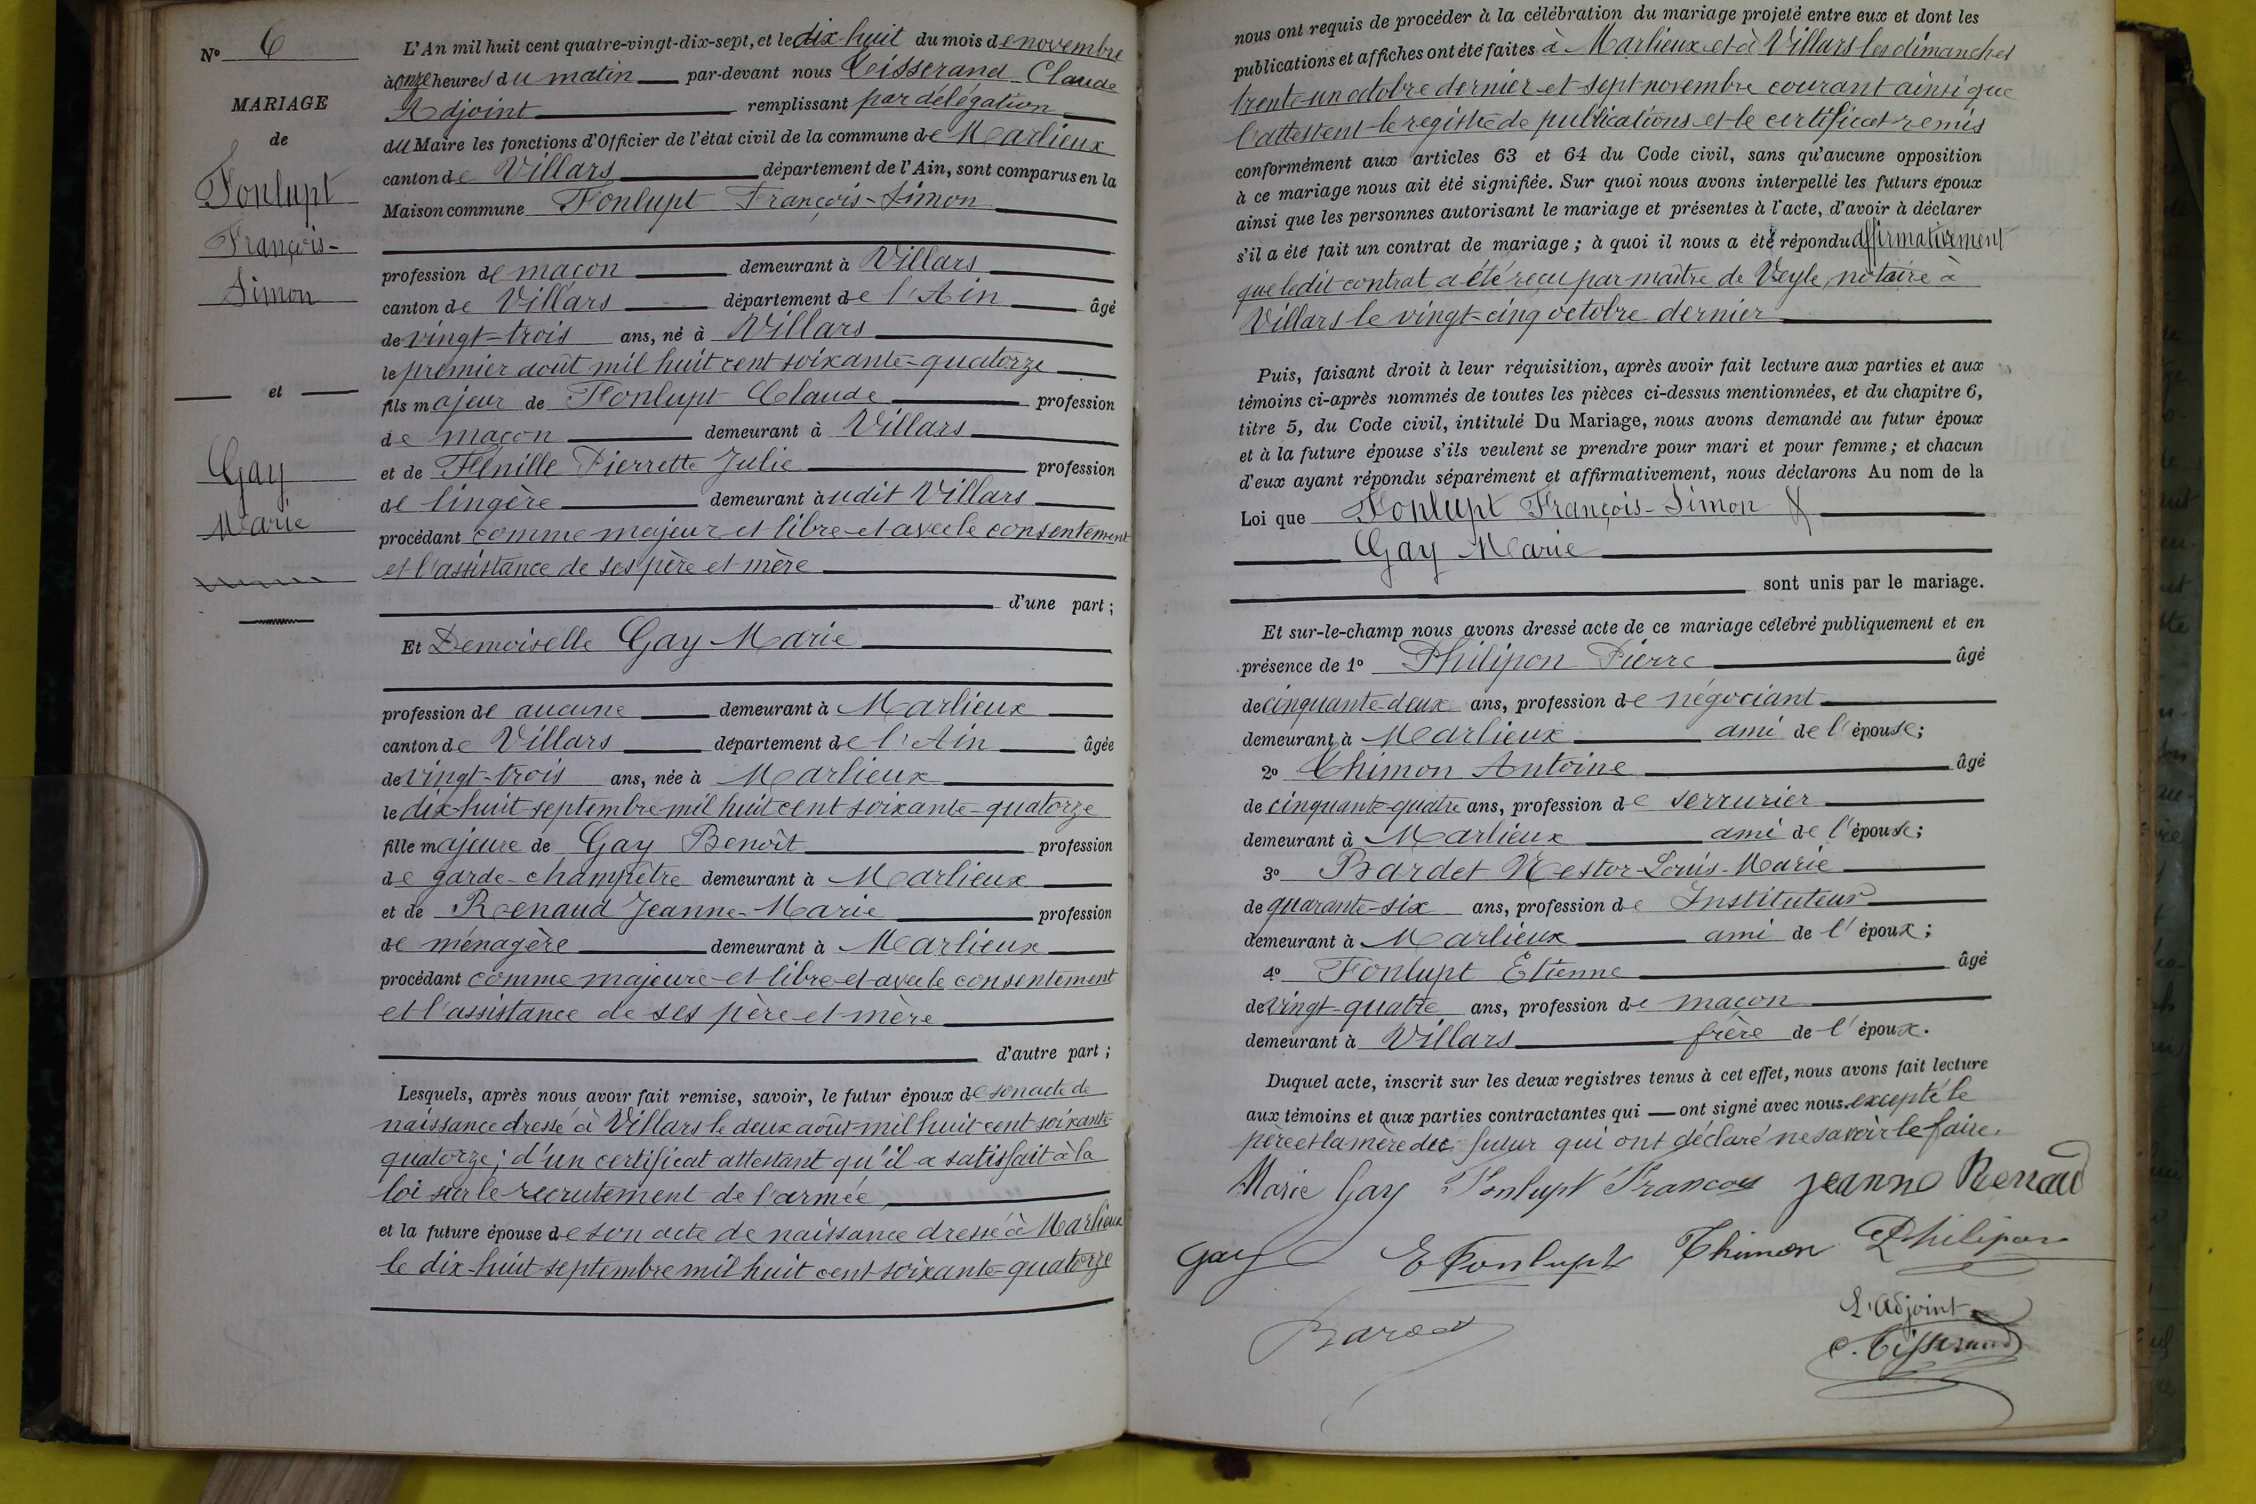 N° 6
MARIAGE
de
Fonlupt
François-
Simon
et
Gay
Marie
L'An mil huit cent quatre-vingt-dix-sept, et le dix-huit du mois de novembre
à onze heures du matin par-devant nous Tisserand Claude
Adjoint remplissant par délégation
du Maire les fonctions d'Officier de l'état civil de la commune de Marlieux
canton de Villars département de l'Ain, sont comparus en la
Maison commune Fonlupt François-Simon
profession de maçon demeurant à Villars
canton de Villars département de l'Ain âgé
de vingt-trois ans, né à Villars
le premier août mil huit cent soixante-quatorze
fils majeur de Fonlupt Claude profession
de maçon demeurant à Villars
et de Pierrette Julie profession
de lingère demeurant audit Villars
procédant comme majeur et libre et avec le consentement
et l'assistance de ses père et mère
d'une part ;
Et Demoiselle Gay Marie
profession de aucune demeurant à Marlieux
canton de Villars département de l'Ain âgée
de vingt-trois ans, née à Marlieux
le dix-huit septembre mil huit cent soixante-quatorze
fille majeure de Gay Benoît profession
de garde-champêtre demeurant à Marlieux
et de Renaud Jeanne-Marie profession
de ménagère demeurant à Marlieux
procédant comme majeure et libre et avec le consentement
et l'assistance de ses père et mère
d'autre part ;
Lesquels, après nous avoir fait remise, savoir, le futur époux de son acte de
naissance dressé à Villars le deux août mil huit cent soixante
quatorze ; d'un certificat attestant qu'il a satisfait à la
loi sur le recrutement de l'armée
et la future épouse de son acte de naissance dressé à Marlieux
le dix-huit septembre mil huit cent soixante-quatorze
nous ont requis de procéder à la célébration du mariage projeté entre eux et dont les
publications et affiches ont été faites à Marlieux et à Villars les dimanches
trente-un octobre dernier et sept novembre courant ainsi que
l'attestent le registre de publications et le certificat remis
conformément aux articles 63 et 64 du Code civil, sans qu'aucune opposition
à ce mariage nous ait été signifiée. Sur quoi nous avons interpellé les futurs époux
ainsi que les personnes autorisant le mariage et présentes à l'acte, d'avoir à déclarer
s'il a été fait un contrat de mariage ; à quoi il nous a été répondu affirmativement
que ledit contrat a été reçu par maître de Veyle, notaire à
Villars le vingt-cinq octobre dernier
Puis, faisant droit à leur réquisition, après avoir fait lecture aux parties et aux
témoins ci-après nommés de toutes les pièces ci-dessus mentionnées, et du chapitre 6,
titre 5, du Code civil, intitulé Du Mariage, nous avons demandé au futur époux
et à la future épouse s'ils veulent se prendre pour mari et pour femme ; et chacun
d'eux ayant répondu séparément et affirmativement, nous déclarons Au nom de la
Loi que Fonlupt François-Simon &
Gay Marie
sont unis par le mariage.
Et sur-le-champ nous avons dressé acte de ce mariage célébré publiquement et en
présence de 1° Philipon Pierre âgé
de cinquante-deux ans, profession de négociant
demeurant à Marlieux ami de l'épouse ;
2° Thimon Antoine âgé
de cinquante-quatre ans, profession de serrurier
demeurant à Marlieux ami de l'épouse ;
3° Bardet Nestor-Louis-Marie
de quarante-six ans, profession de Instituteur
demeurant à Marlieux ami de l'époux ;
4° Fonlupt Etienne âgé
de vingt-quatre ans, profession de maçon
demeurant à Villars frère de l'époux.
Duquel acte, inscrit sur les deux registres tenus à cet effet, nous avons fait lecture
aux témoins et aux parties contractantes qui ont signé avec nous. excepté le
père et la mère du futur qui ont déclaré ne savoir le faire.
Marie Gay Fonlupt François Jeanne Renaud
Gay E Fonlupt Thimon Philipon
L'Adjoint
Bardet C. Tisserand